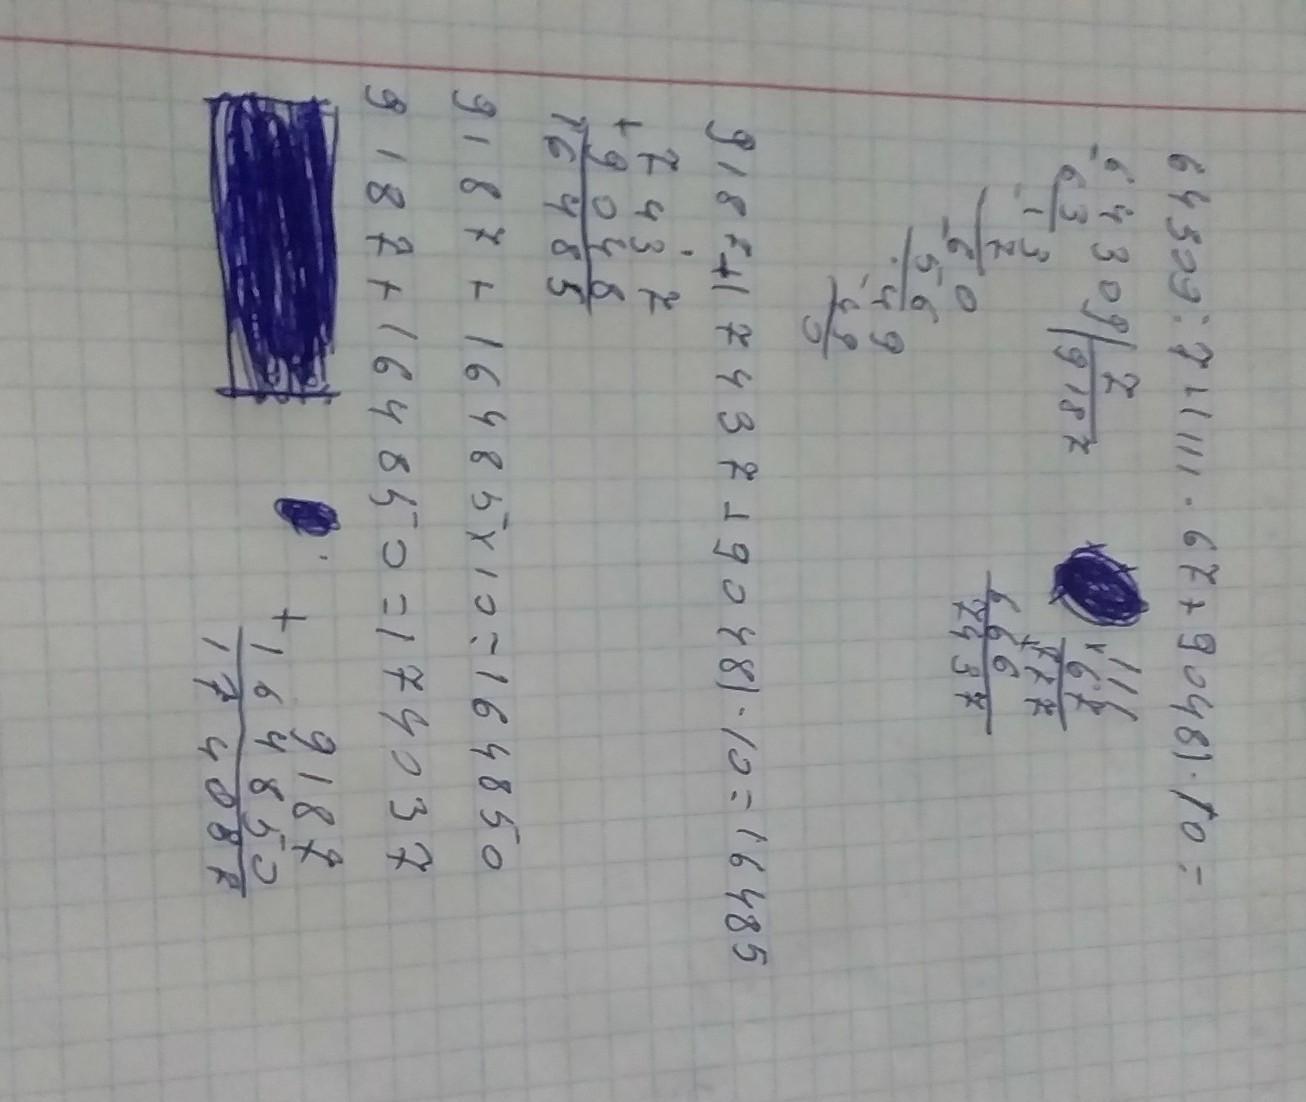 64309:7+(111·67+9048)·10=
-64309|7
63 |9187
-13
7
-60
56
-49
49
0
×111
67
+777
666
7437
9187+(7437+9048)·10=16485
7437
+9048
16485
9187+16485×10=164850
9187+164850=174037
9187
+164850
174037